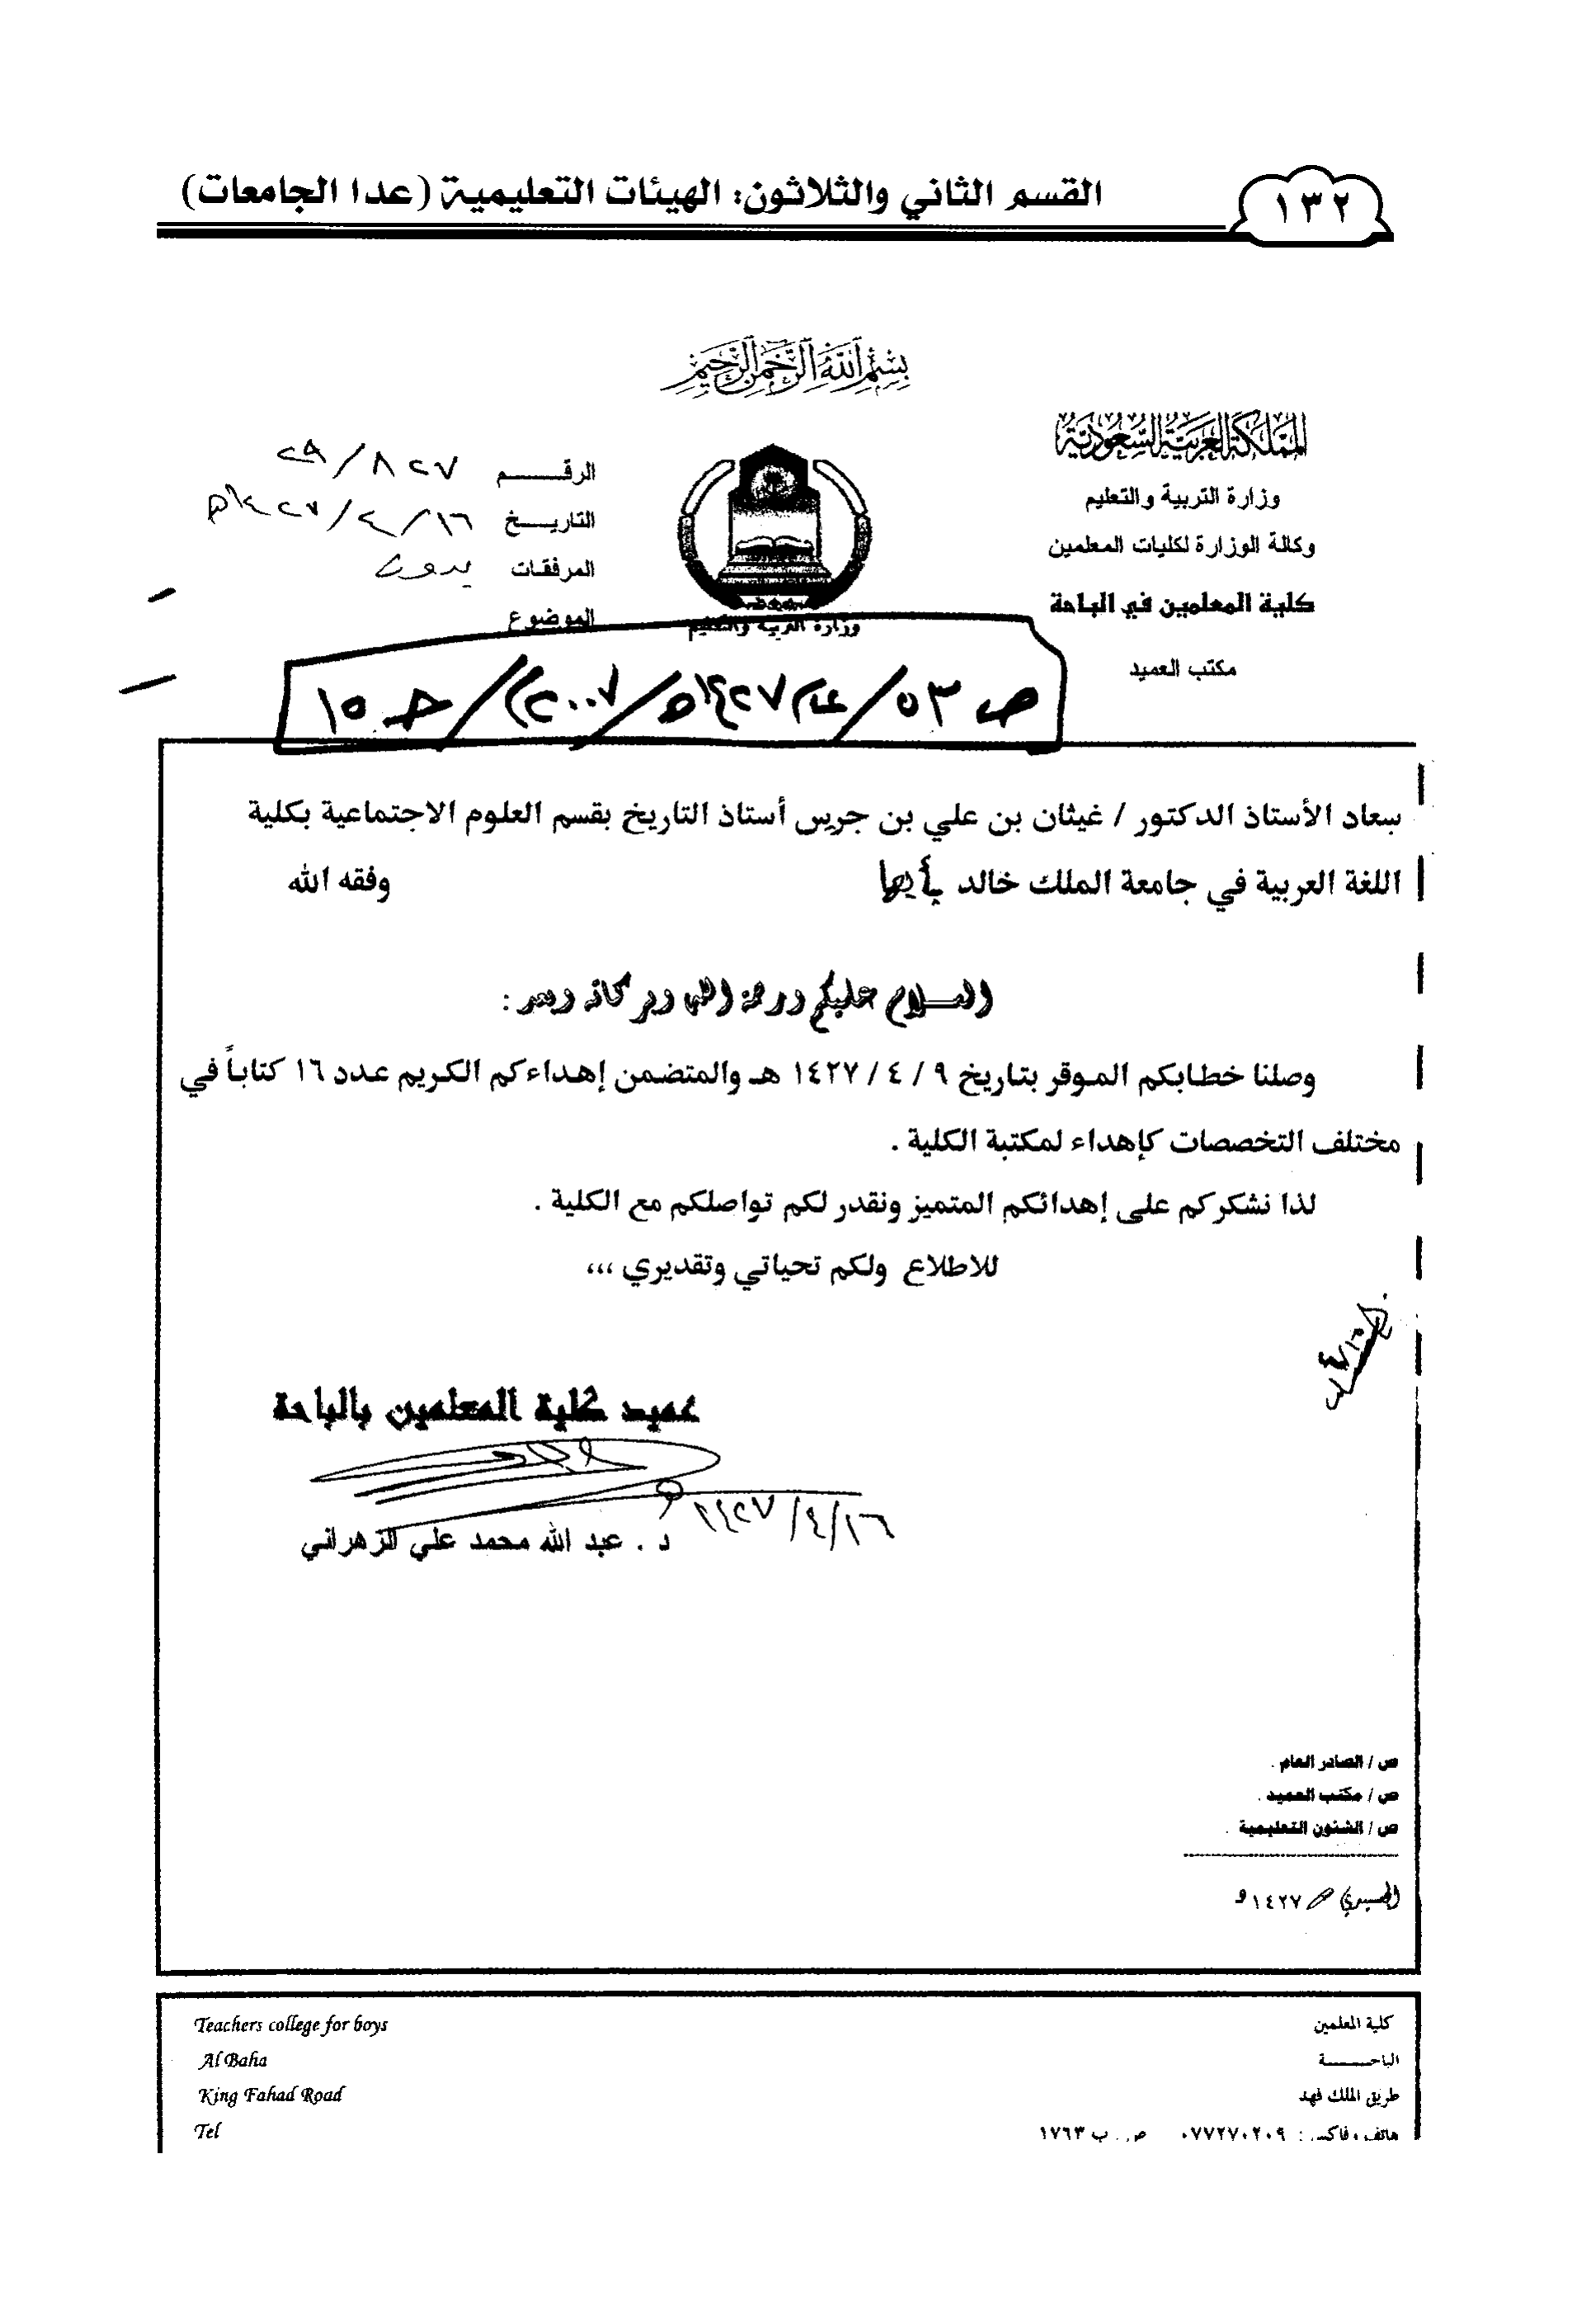 ١٣٢
القسم الثاني والثلاثون: الهيئات التعليمية (عدا الجامعات)
بسم الله الرحمن الرحيم
المملكة العربية السعودية
وزارة التربية والتعليم
وكالة الوزارة لكليات المعلمين
كلية المعلمين في الباحة
مكتب العميد
وزارة التربية والتعليم
الرقم ٨٢٧/٢٩
التاريخ ١٦/٤/١٤٢٧هـ
المرفقات بدون
الموضوع
ص ٥٣/عام ١٤٢٧هـ/٢٠٠٧م/جـ ١٥
سعاد الأستاذ الدكتور / غيثان بن علي بن جريس أستاذ التاريخ بقسم العلوم الاجتماعية بكلية
اللغة العربية في جامعة الملك خالد بأبها وفقه الله
السلام عليكم ورحمة الله وبركاته وبعد :
وصلنا خطابكم الموقر بتاريخ ٩ / ٤ / ١٤٢٧ هـ والمتضمن إهداءكم الكريم عدد ١٦ كتاباً في
مختلف التخصصات كإهداء لمكتبة الكلية .
لذا نشكركم على إهدائكم المتميز ونقدر لكم تواصلكم مع الكلية .
للاطلاع ولكم تحياتي وتقديري ،،،
عميد كلية المعلمين بالباحة
١٦/٤/١٤٢٧
د . عبد الله محمد علي الزهراني
ص / الصادر العام .
ص / مكتب العميد .
ص / الشئون التعليمية .
١٤٢٧
كلية المعلمين
الباحة
طريق الملك فهد
هاتف وفاكس : ٠٧٧٢٧٠٢٠٩ ص . ب ١٧٦٣
Teachers college for boys
Al Baha
King Fahad Road
Tel